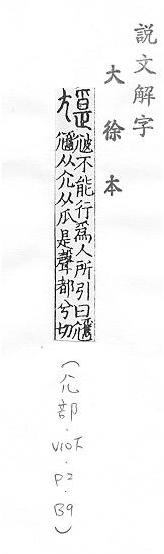 説文解字
大徐本
𡰢不能行爲人所引曰𡰖
𡰢从尣从爪是聲都兮切
(尣部.V10下.P2.B9)